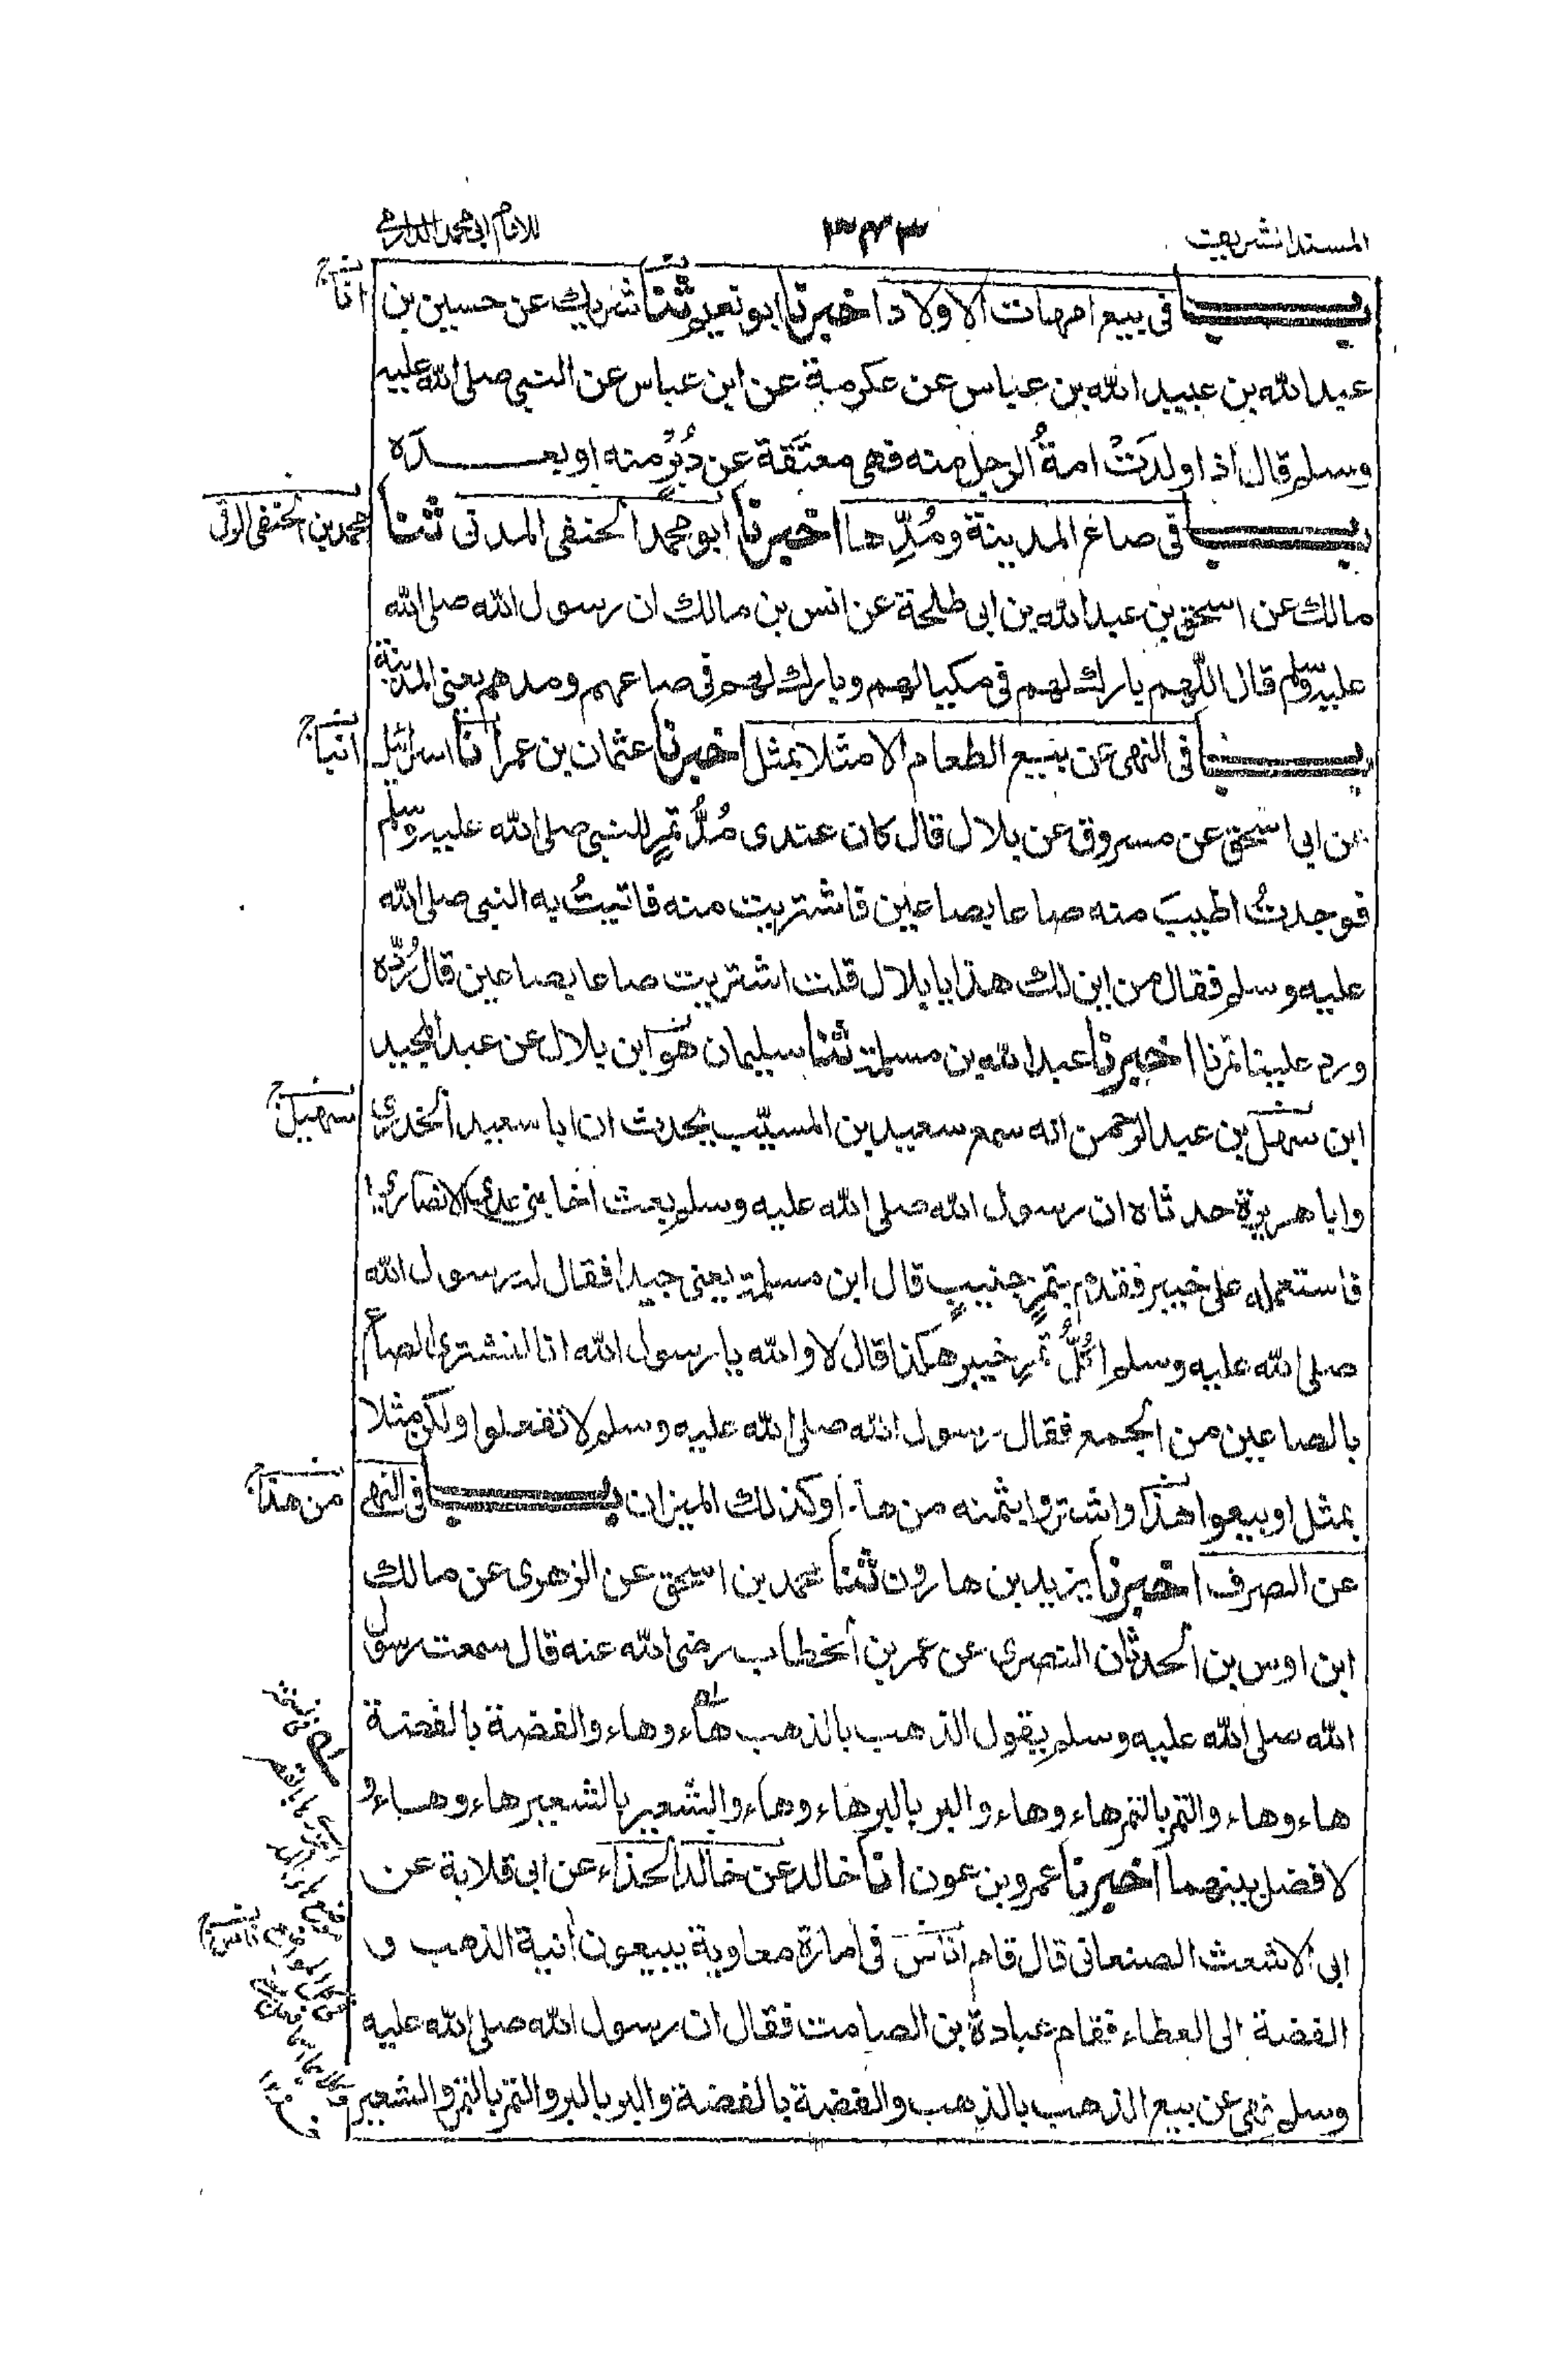 المسند الشريف
٣٤٣
للامام ابي محمد الدارمي
باب في بيع امهات الاولاد اخبرنا ابو نعيم ثنا شريك عن حسين بن
انا
عبد الله بن عبيد الله بن عباس عن عكرمة عن ابن عباس عن النبي صلى الله عليه
وسلم قال اذا ولدَتْ امةُ الرجل منه فهي معتَقة عن دُبُرٍ منه او بعده
باب في صاع المدينة ومُدِّها اخبرنا ابو محمد الحنفي المدني ثنا
محمد بن الحنفي
مالك عن اسحق بن عبد الله بن ابي طلحة عن انس بن مالك ان رسول الله صلى الله
عليه وسلم قال اللهم بارك لهم في مكيالهم وبارك لهم في صاعهم ومدهم يعني المدينة
باب في النهي عن بيع الطعام الا مثلا بمثل اخبرنا عثمان بن عمر انا اسرائيل
انبا
عن ابي اسحق عن مسروق عن بلال قال كان عندي مُدُّ تمرٍ للنبي صلى الله عليه وسلم
فوجدتُ اطيبَ منه صاعا بصاعين فاشتريت منه فاتيتُ به النبي صلى الله
عليه وسلم فقال من اين لك هذا يا بلال قلت اشتريت صاعا بصاعين قال رُدّه
ورد علينا تمرنا اخبرنا عبد الله بن مسلمة ثنا سليمان هو ابن بلال عن عبد المجيد
ابن سهل بن عبد الرحمن انه سمع سعيد بن المسيّب يحدث ان ابا سعيد الخدري
سهيل
وابا هريرة حدثاه ان رسول الله صلى الله عليه وسلم بعث اخا بني عدي الانصاري
فاستعمله على خيبر فقدم بتمرٍ جنيبٍ قال ابن مسلمة يعني جيدا فقال له رسول الله
صلى الله عليه وسلم اكُلُّ تمرِ خيبر هكذا قال لا والله يا رسول الله انا لنشتري الصاع
بالصاعين من الجمع فقال رسول الله صلى الله عليه وسلم لا تفعلوا ولكن مثلا
بمثل او بيعوا هذا واشتروا بثمنه من هذا وكذلك الميزان باب في النهي
من هذا
عن الصرف اخبرنا يزيد بن هارون ثنا محمد بن اسحق عن الزهري عن مالك
ابن اوس بن الحدثان النصري عن عمر بن الخطاب رضي الله عنه قال سمعت رسول
الله صلى الله عليه وسلم يقول الذهب بالذهب هاء وهاء والفضة بالفضة
هاء وهاء والتمر بالتمر هاء وهاء والبر بالبر هاء وهاء والشعير بالشعير هاء وهاء و
لا فضل بينهما اخبرنا عمرو بن عون انا خالد عن خالد الحذاء عن ابي قلابة عن
ابي الاشعث الصنعاني قال قام اناس في امارة معاوية يبيعون انية الذهب و
ناس
الفضة الى العطاء فقام عبادة بن الصامت فقال ان رسول الله صلى الله عليه
وسلم نهى عن بيع الذهب بالذهب والفضة بالفضة والبر بالبر والتمر بالتمر والشعير